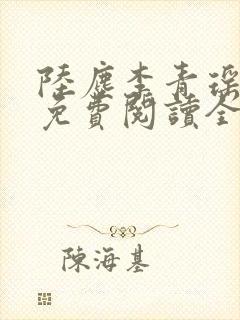 陸塵李青瑤
免費閱讀全
陳海基